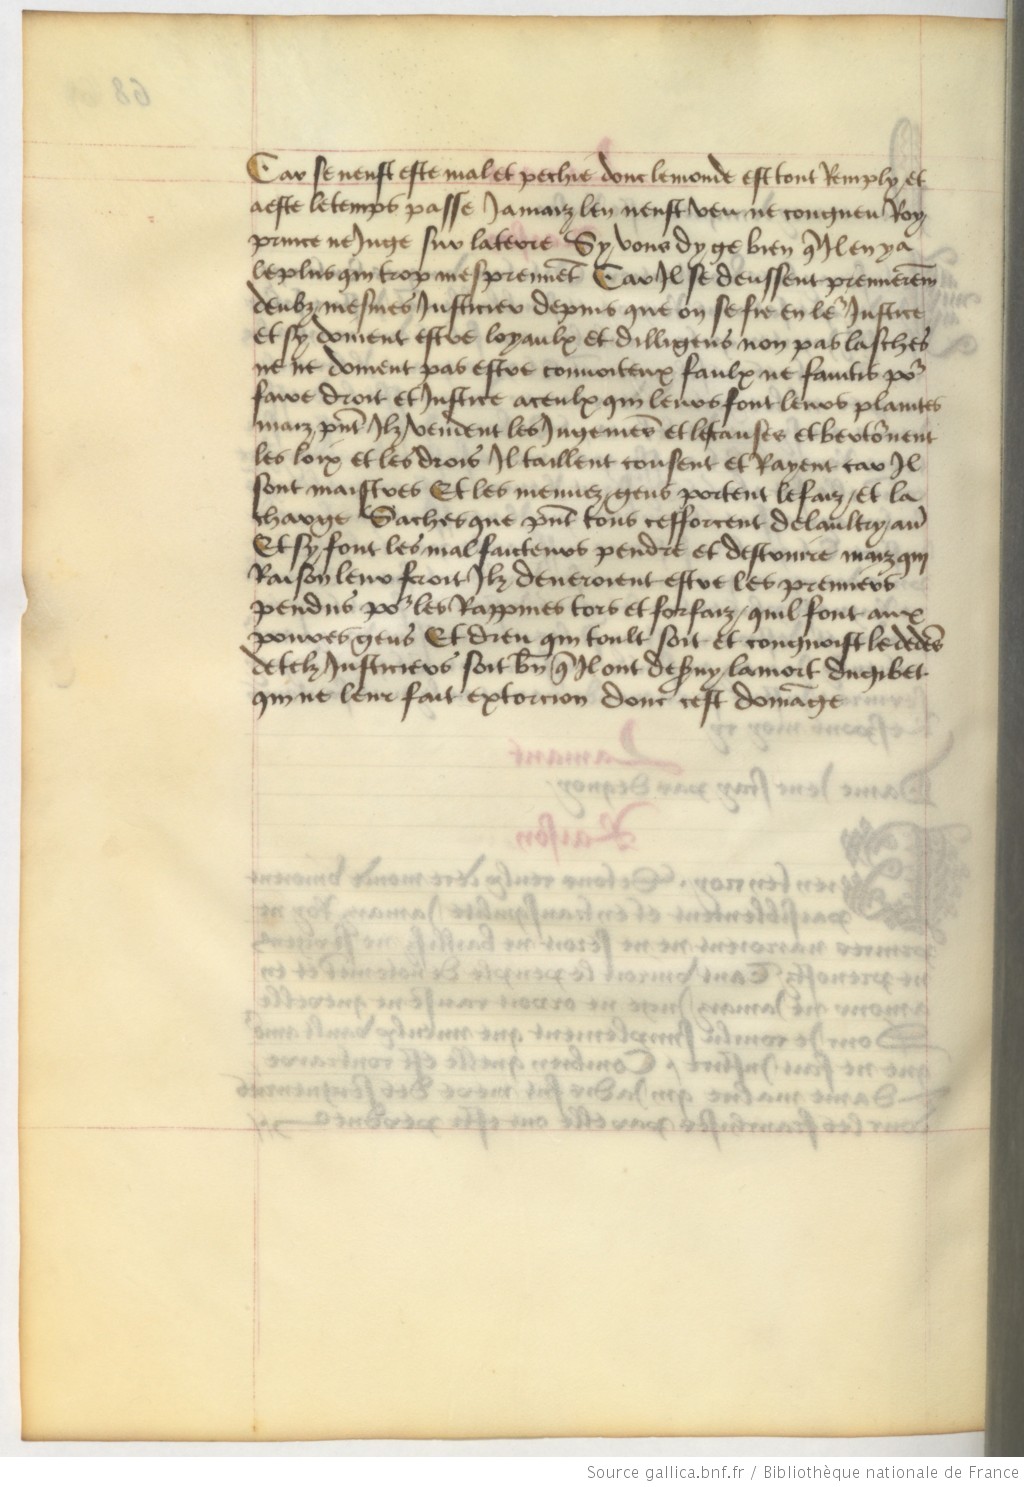 Car se neust este mal et pechie donc le monde est tout Remply et
a este le temps passe Jamaiz len neust veu ne congneu Roy
prince ne Juge sur la terre Sy vous dy ge bien q̃ Jl en y a
le plus qui trop mesprennẽt Car Jl se deussent premierem̃
deulz mesmes Justicier depuis que on se fie en leʳ Justice
et sy doiuent estre loyaulx et dilligens non pas lasches
ne ne doiuent pas estre conuoiteux faulx ne faintis poʳ
faire droit et Justice a ceulx qui leurs font leurs plaintes
maiz pñt Jlz vendent les Jugemẽs et les causes et bertõnent
les loix et les drois Jl taillent cousent et Rayent car Jl
sont maistres Et les menuez gens portent le faiz et la
charge Saches que pñt tous cefforcent de laultry
Et sy font les malfaicteurs pendre et destruire maiz qui
Raison leur feroit Jlz deueroient estre les premiers
pendus poʳ les Rappines tors et forfaiz quil font aux
poures gens Et dieu qui toult soit et congnoist le dedẽs
de telz Justiciers soit bñ q̃ Jl ont deseruy la mort du gibet
qui ne leur fait extorcion donc cest domãge
Source gallica.bnf.fr / Bibliothèque nationale de France